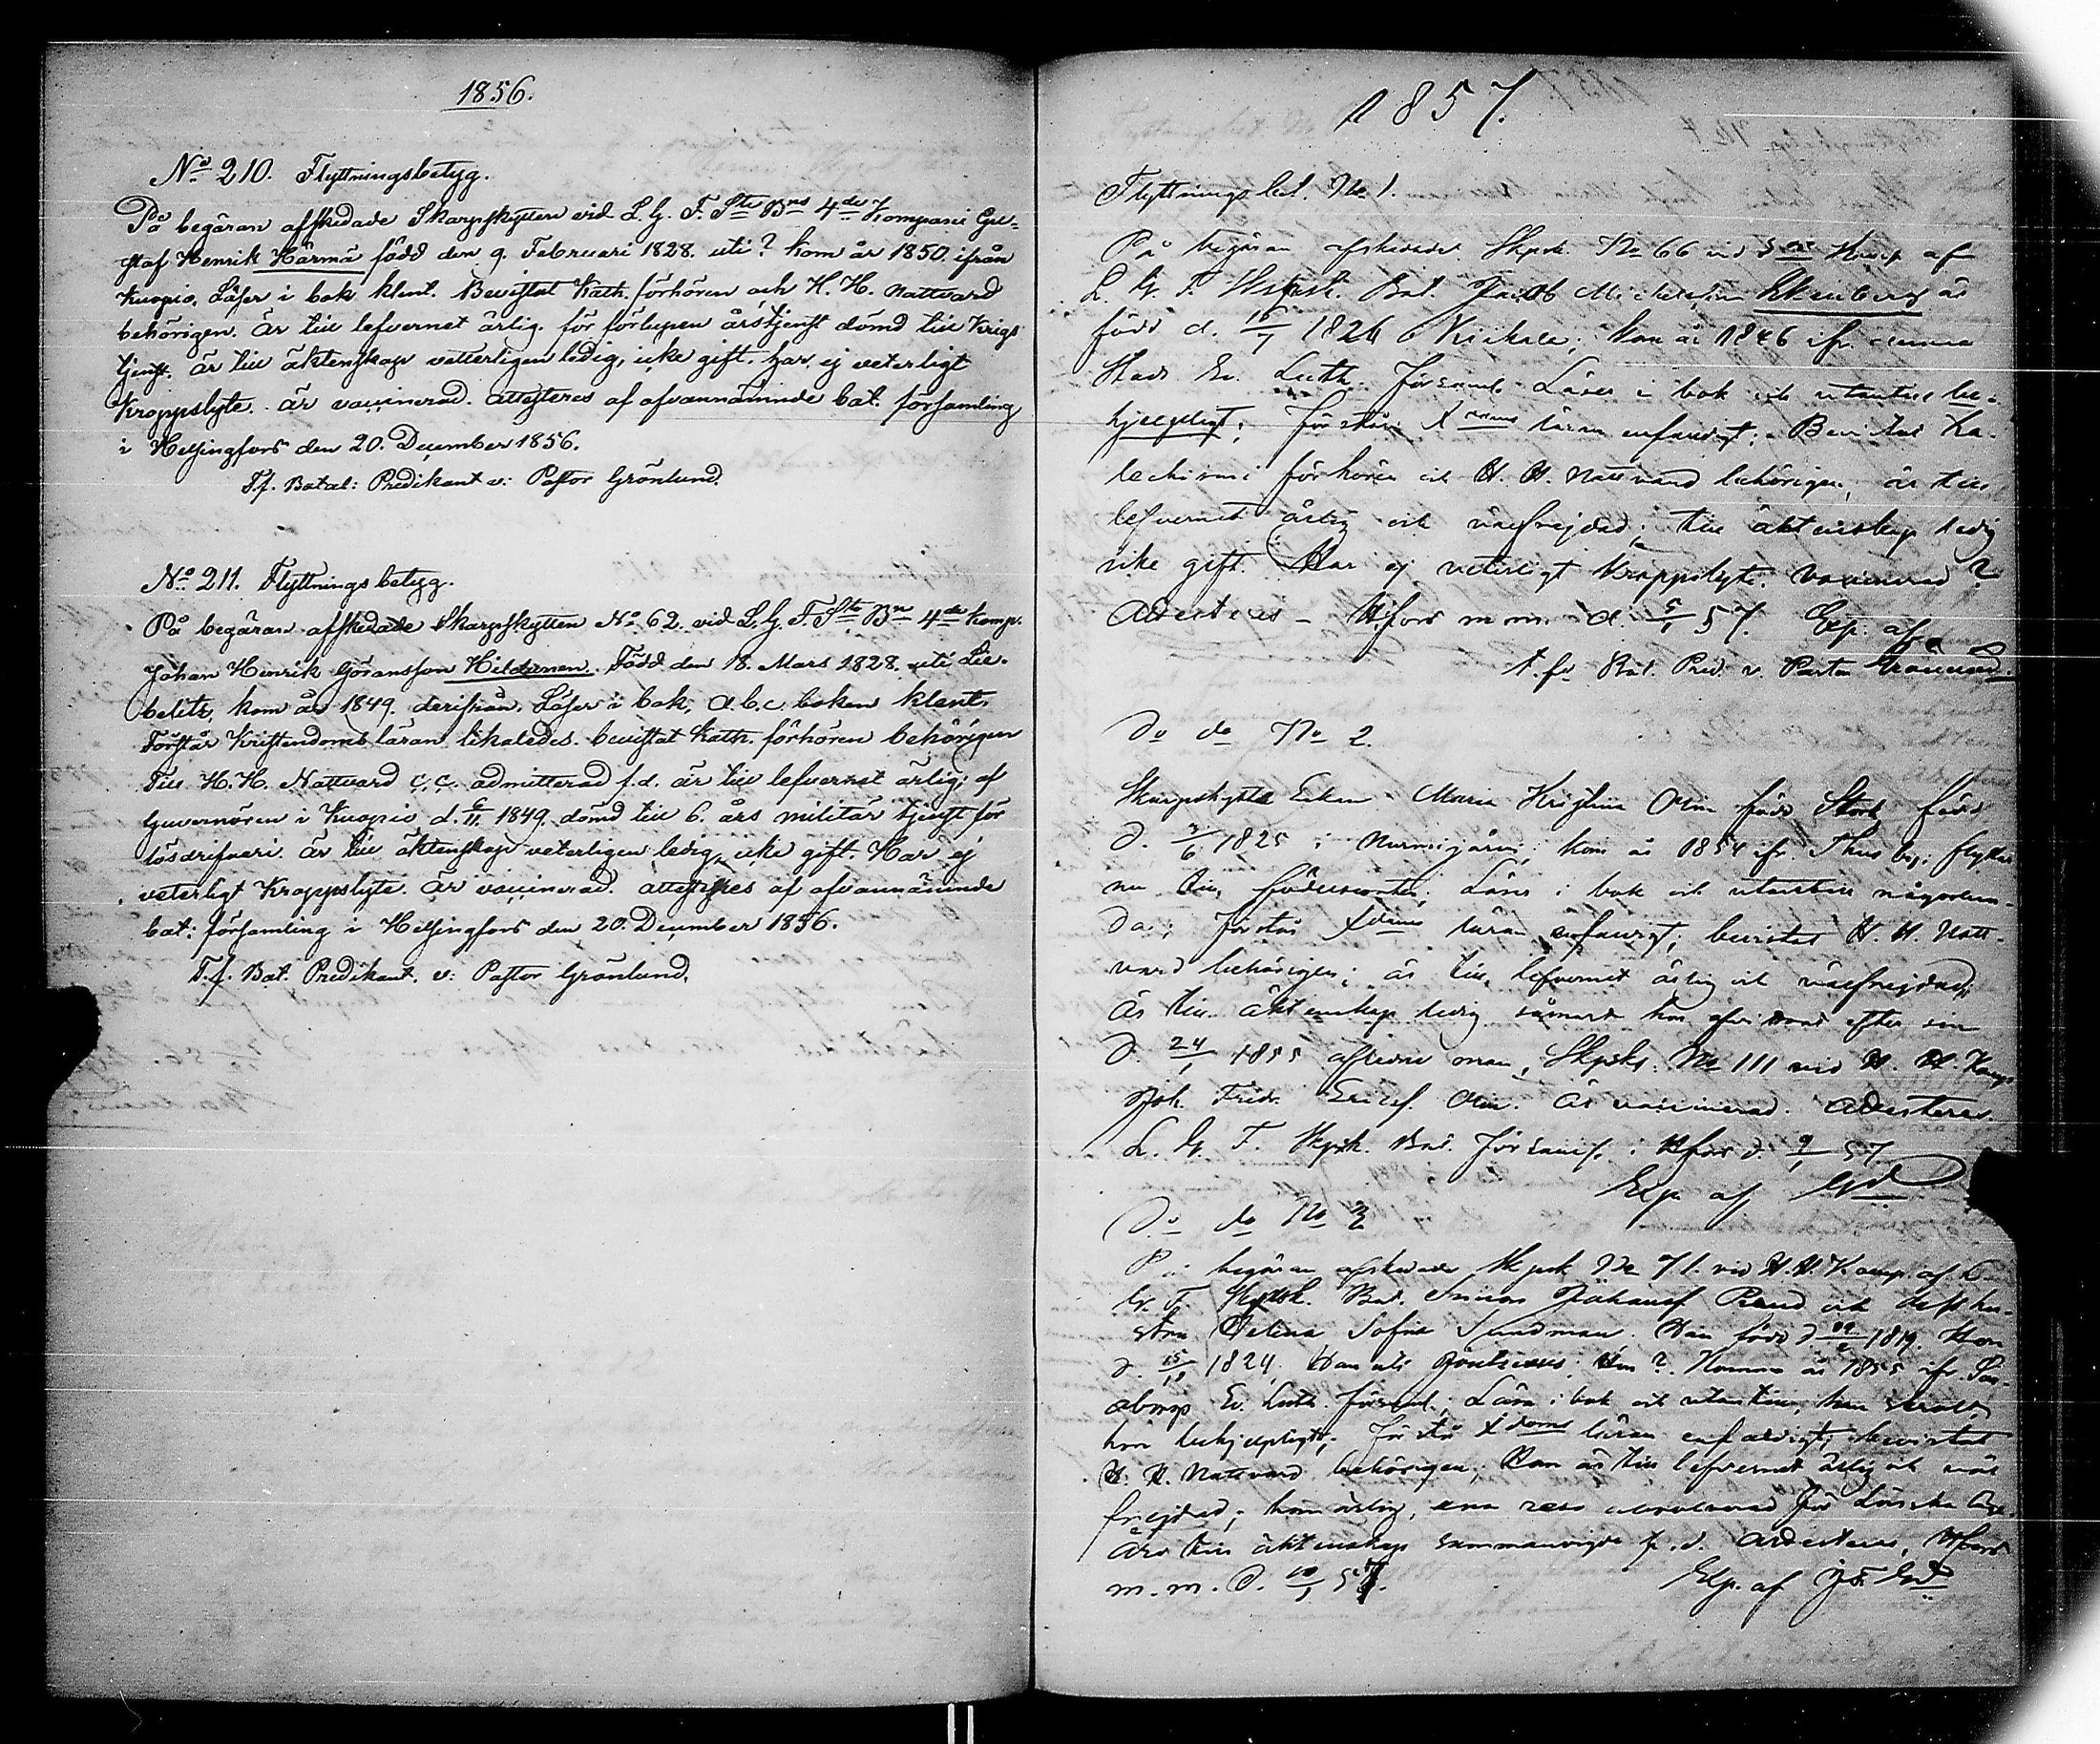 1856.
No 210. Flyttningsbetyg.
På begäran afskedade Skarpskytten vid L. G. F. Ste Bns 4de Kompani Gu-
staf Henrik Härmä född den 9. Februari 1828. uti? kom år 1850. ifrån
Kuopio. Läser i bok klent. Bevistat Kath. förhören och H. H. Nattvard
behörigen. Är till lefvernet ärlig. för förlupen årstjenst dömd till Krigs
tjenst. är till äktenskap vetterligen ledig, icke gift. har ej veterligt
Kroppslyte. är vaccinerad. attesteras af ofvannämnde bat. församling
i Helsingfors den 20. December 1856.
T.f. Batal: Predikant v: Pastor Grönlund.
No 211. Flyttningsbetyg.
På begäran afskedade Skarpskytten No 62. vid L. G. F. Ste Bn 4de komp.
Johan Henrik Göransson Hildunen. Född den 18. Mars 1828. uti Lie-
belitz, kom år 1849. derifrån. Läser i bok, a.b.c. boken klent.
Förstår Kristendoms läran likaledes. bevistat Kath. förhören behörigen
Till H. H. Nattvard admitterad f.d. är till lefvernet ärlig; af
Guvernören i Kuopio d. 6/11 1849. dömd till 6. års militär tjenst för
lösdrifveri. är till äktenskap veterligen ledig, icke gift. Har ej
veterligt Kroppslyte. Är vaccinerad. attesteres af ofvannämnde
bat: församling i Helsingfors den 20. December 1856.
T.f. Bat. Predikant. v: Pastor Grönlund.
1857.
Flyttnings bet. No 1.
På begäran afskedade Skpsk. No 66 vid Komp. af
L. G. F. Skpsk. Bat. Jacob Michelsson är
född d. 1826 i; kom år 1846 ifr. denna
Stads Ev. Luth. Församl. Läser i bok och utantill be-
hjelpligt; förstår Xdoms läran enfaldigt; Bevistat Ka-
techismi förhören och H. H. Nattvard behörigen, är till
lefvernet ärlig och välfrejdad; till äktenskap ledig
icke gift. Har ej veterligt kroppslyte. Vaccinerad?
Attesteres - H:fors m.m. d. 5/1 57. Exp. af
t.f. Bat. Pred. v. Pastor Grönlund.
Do do No 2.
Skarpskytte Enkan Maria Kristina Olin född Stork född
d. 3/6 1825 i Nurmijärvi; kom år 1854 ifr. Thusby; flyttar
nu till födelseorten; Läser i bok och utantill någorlun-
da; förstår Xdoms läran enfaldigt; bevistat H. H. Natt-
vard behörigen; är till lefvernet ärlig och välfrejdad;
är till äktenskap ledig såsom efter sin
d. 24/1 1855 aflidne man, Skpsk. No 111 vid H. H. Komp.
Joh. Fredr. Ericsf. Olin. Är vaccinerad. Attesteres.
L. G. F. Skpsk. Bat. Församl. i H:fors d. 9/1 57
Exp. af Gd
Do do No 3
På begäran afskedade Skpsk No 71. vid H. H. Komp. af L.
G. F. Skpsk. Bat. Simon Johansf. och dess hu-
stru Helena Sofia Sundman. Han född d. 1819. Hon
d. 15/10 1824. Han uti; Hon? Komma år 1855 ifr.
Ev. Luth. församl.; Läsa i bok och utantill, han,
hon behjelpligt; förstå Xdoms läran enfaldigt; bevistat
H. H. Nattvard behörigen; Han är till lefvernet ärlig och väl
frejdad; hon ärlig, en resa för
Äro till äktenskap sammanvigde f.d. Attesteres, H:fors
m.m. d. 10/1 57.
Exp. af